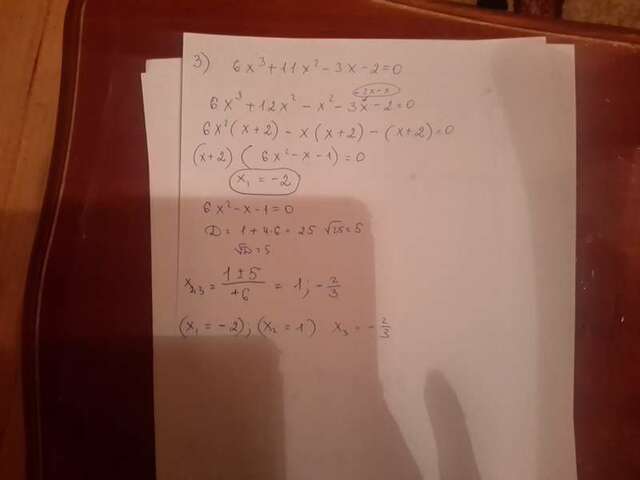 3) 6x³+11x²-3x-2=0
-2x-x
6x³+12x²-x²-3x-2=0
6x²(x+2)-x(x+2)-(x+2)=0
(x+2)(6x²-x-1)=0
x₁=-2
6x²-x-1=0
D=1+4·6=25 √25=5
√D=5
x₂,₃=1±5/+6=1;-2/3
(x₁=-2);(x₂=1) x₃=-2/3